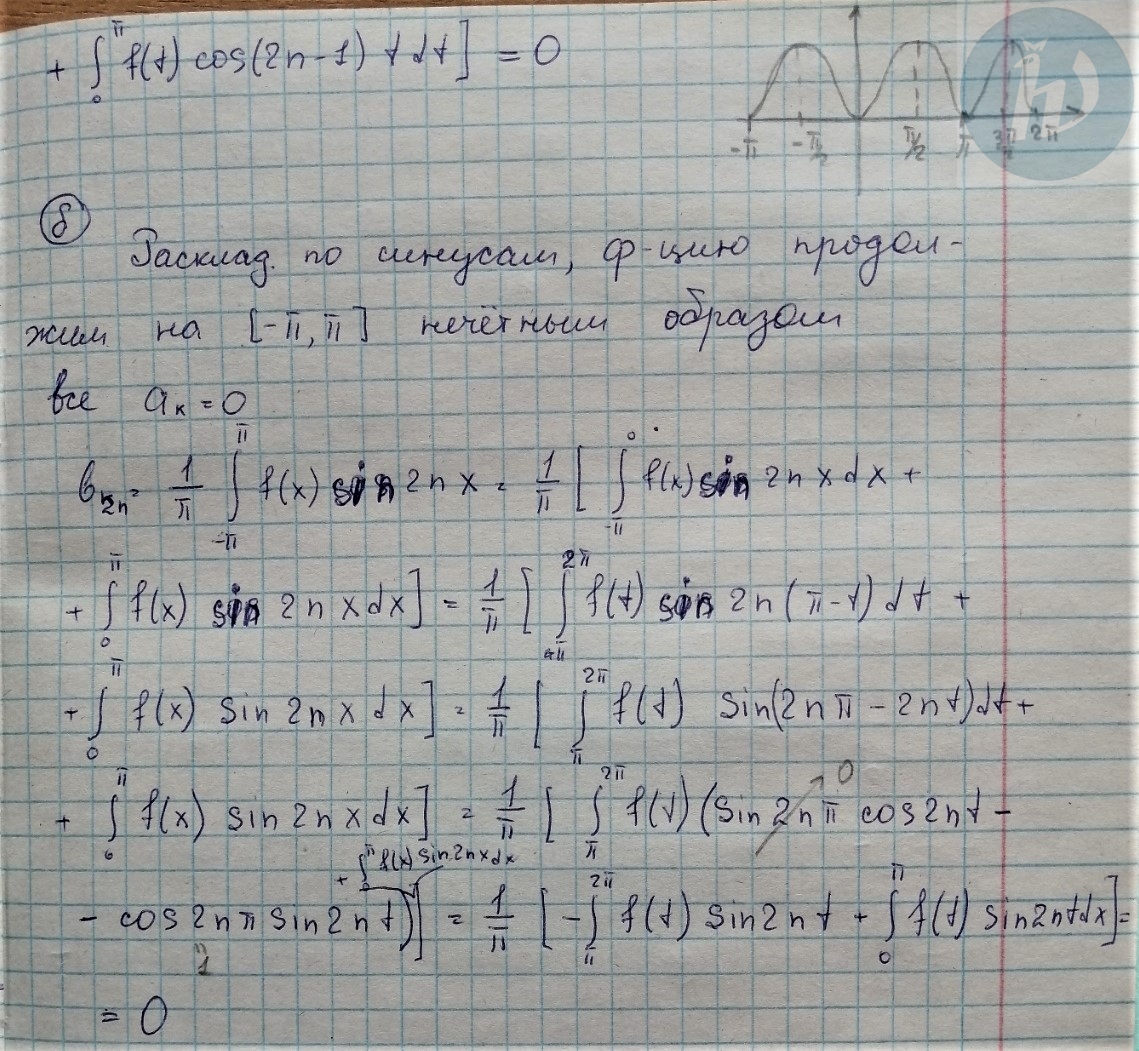 + ∫₀^π f(t) cos(2n-1) t dt] = 0
-π -π/2 π/2 π 3π/2 2π
б
Расклад. по синусам, ф-цию продол-
жим на [-π, π] нечётным образом
все aₖ = 0
b₂ₙ = 1/π ∫_{-π}^{π} f(x) sin 2nx = 1/π [ ∫_{-π}^{0} f(x) sin 2nx dx +
+ ∫₀^π f(x) sin 2nx dx] = 1/π [ ∫_π^{2π} f(t) sin 2n(π-t) dt +
+ ∫₀^π f(x) sin 2nx dx] = 1/π [ ∫_π^{2π} f(t) sin(2nπ - 2nt)dt +
+ ∫₀^π f(x) sin 2nx dx] = 1/π [ ∫_π^{2π} f(t) (sin 2nπ cos 2nt - 0
+ ∫₀^π f(x) sin 2nx dx
- cos 2nπ sin 2nt)] = 1/π [ - ∫_π^{2π} f(t) sin 2nt + ∫₀^π f(t) sin 2nt dx] =
" 1
= 0